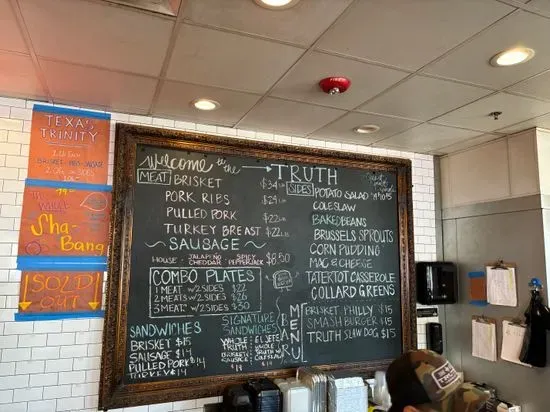 TEXAS
TRINITY
BRISKET-RIBS-SAUSAGE
2 SIDES
THE WHOLE
Sha-
Bang!
SOLD
OUT
Welcome to the → TRUTH
MEAT
BRISKET $34 LB
PORK RIBS $29 LB
PULLED PORK $22 LB
TURKEY BREAST $22 LB
~SAUSAGE~
HOUSE JALAPEÑO CHEDDAR SPICY PEPPERJACK $8.50
COMBO PLATES
1 MEAT w/2 SIDES $22
2 MEATS w/2 SIDES $26
3 MEAT w/2 SIDES $30
SANDWICHES
BRISKET $15
SAUSAGE $14
PULLED PORK $14
TURKEY $14
SIGNATURE
SANDWICHES
WHOLE
TRUTH
BRISKET
SAUSAGE
$19
EL JEFE
WHOLE
TRUTH w/
COLESLAW
$19
SIDES
POTATO SALAD
COLESLAW
BAKED BEANS
BRUSSELS SPROUTS
CORN PUDDING
MAC & CHEESE
TATERTOT CASSEROLE
COLLARD GREENS
BAR
MENU
BRISKET PHILLY $15
SMASH BURGER $15
TRUTH SLAW DOG $15